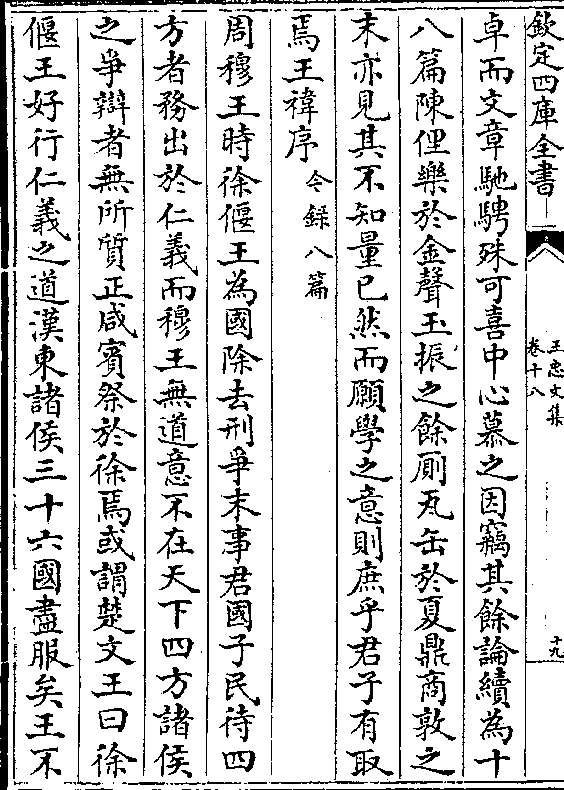 欽定四庫全書
王忠文集
卷十八
十九
卓而文章馳騁殊可喜中心慕之因竊其餘論續為十
八篇陳俚樂於金聲玉振之餘厠瓦缶於夏鼎商敦之
末亦見其不知量已然而願學之意則庶乎君子有取
焉王禕序今錄八篇
周穆王時徐偃王為國除去刑爭末事君國子民待四
方者務出於仁義而穆王無道意不在天下四方諸侯
之爭辯者無所質正咸賓祭於徐焉或謂楚文王曰徐
偃王好行仁義之道漢東諸侯三十六國盡服矣王不